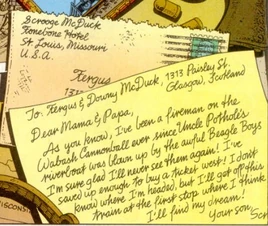 Scrooge McDuck
Fonebone Hotel
St. Louis, Missouri
U.S.A.
Fergus
1313
To: Fergus & Downy McDuck, 1313 Paisley St.
Glasgow, Scotland
Dear Mama & Papa,
As you know, I've been a fireman on the
Wabash Cannonball ever since Uncle Pothole's
riverboat was blown up by the awful Beagle Boys
I'm sure glad I'll never see them again! I've
saved up enough to buy a ticket west! I don't
know where I'm headed, but I'll get off this
train at the first stop where I think
I'll find my dream!
Your son, Scr
WISCONSI